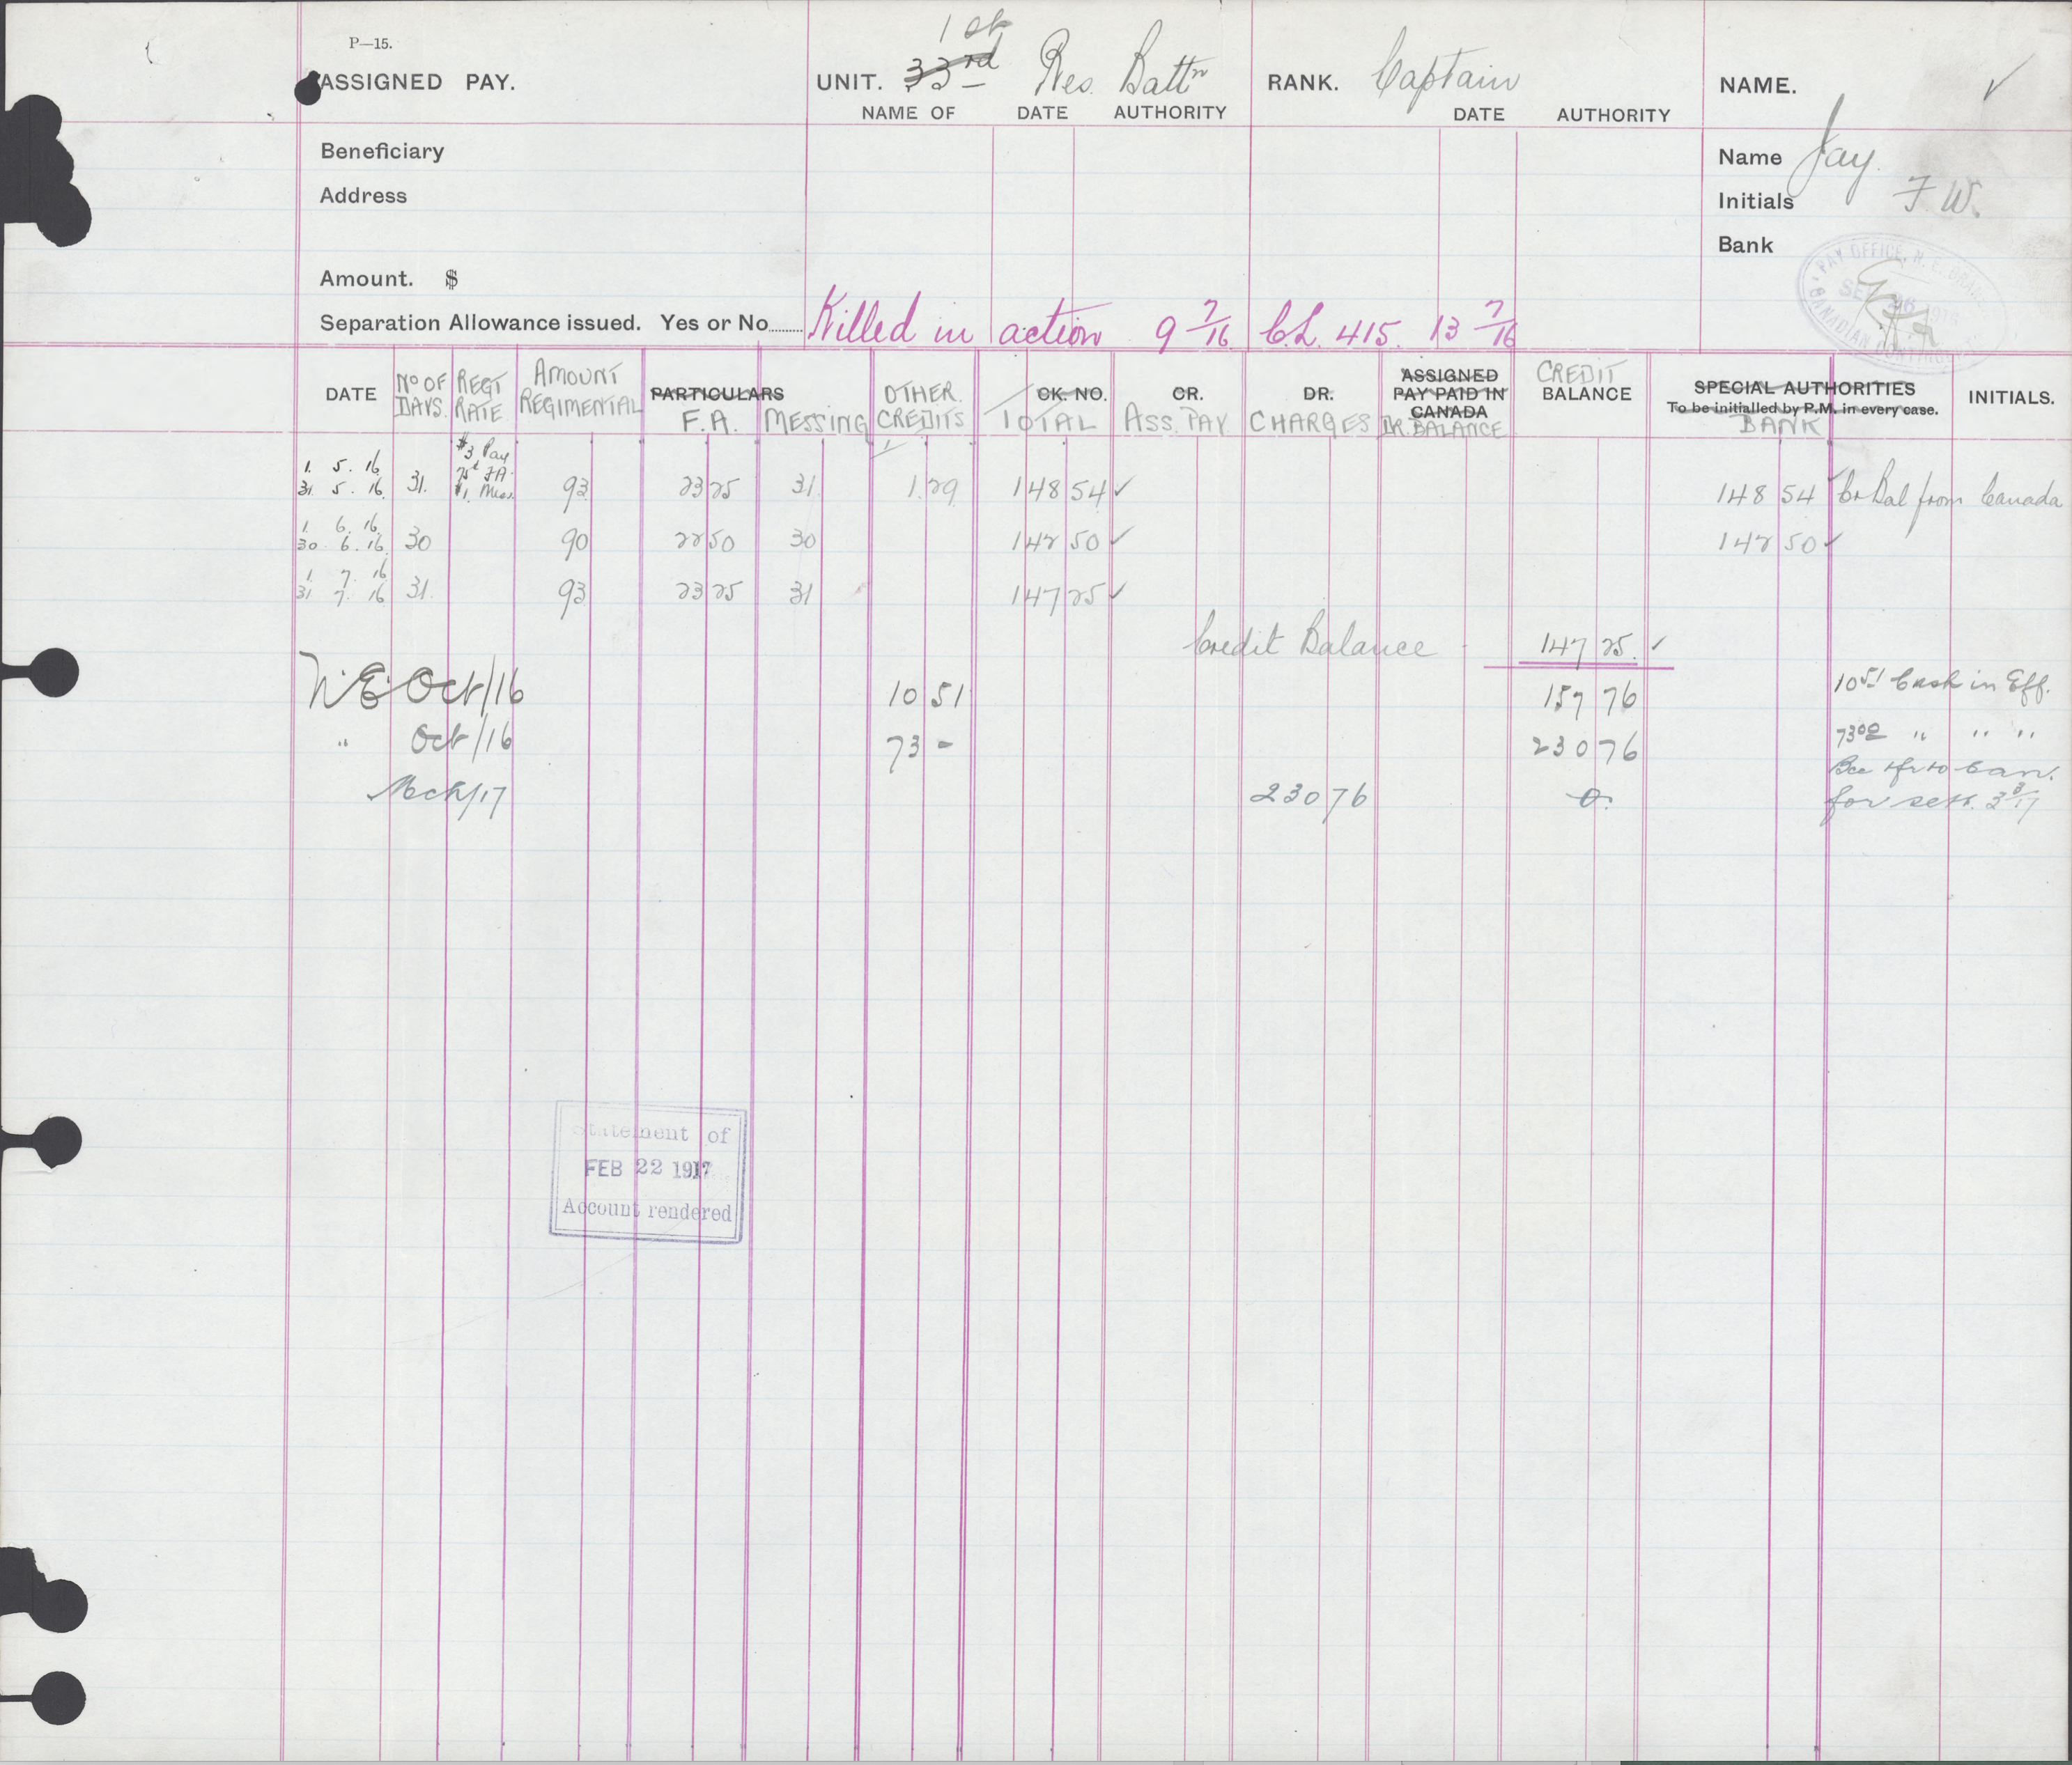 P—15.
ASSIGNED PAY.
UNIT. 33rd 1st Res. Battn
RANK. Captain
NAME. ✓
NAME OF DATE AUTHORITY
DATE AUTHORITY
Beneficiary
Name Jay.
Address
Initials F. W.
Bank
PAY OFFICE,
CANADIAN
Amount. $
Separation Allowance issued. Yes or No........ Killed in action 9 7/16 C.L. 415. 13 7/16
DATE
No OF DAYS.
REGT RATE
AMOUNT REGIMENTAL
PARTICULARS F.A.
MESSING
OTHER CREDITS
CK. NO. TOTAL
CR. ASS. PAY
DR. CHARGES
ASSIGNED PAY PAID IN CANADA DR. BALANCE
CREDIT BALANCE
SPECIAL AUTHORITIES To be initialled by P.M. in every case. BANK
INITIALS.
$3 Pay
75¢ FA.
$1. Mess.
1. 5. 16
31. 5. 16. 31. 93 23 25 31 1.29 148 54 ✓ 148 54 ✓ Cr Bal from Canada
1. 6. 16
30 6. 16. 30 90 22 50 30 142 50 ✓ 142 50 ✓
1. 7. 16
31 7. 16 31. 93 23 25 31 147 25 ✓
Credit Balance 147 25. ✓
N.E. Oct/16 10 51 157 76 10 51 Cash in Eff.
" Oct/16 73 - 230 76 73 00 " " "
Mch/17 230 76 0. Bce tfr to Can.
for sett. 3 3/17
Statement of
FEB 22 1917
Account rendered